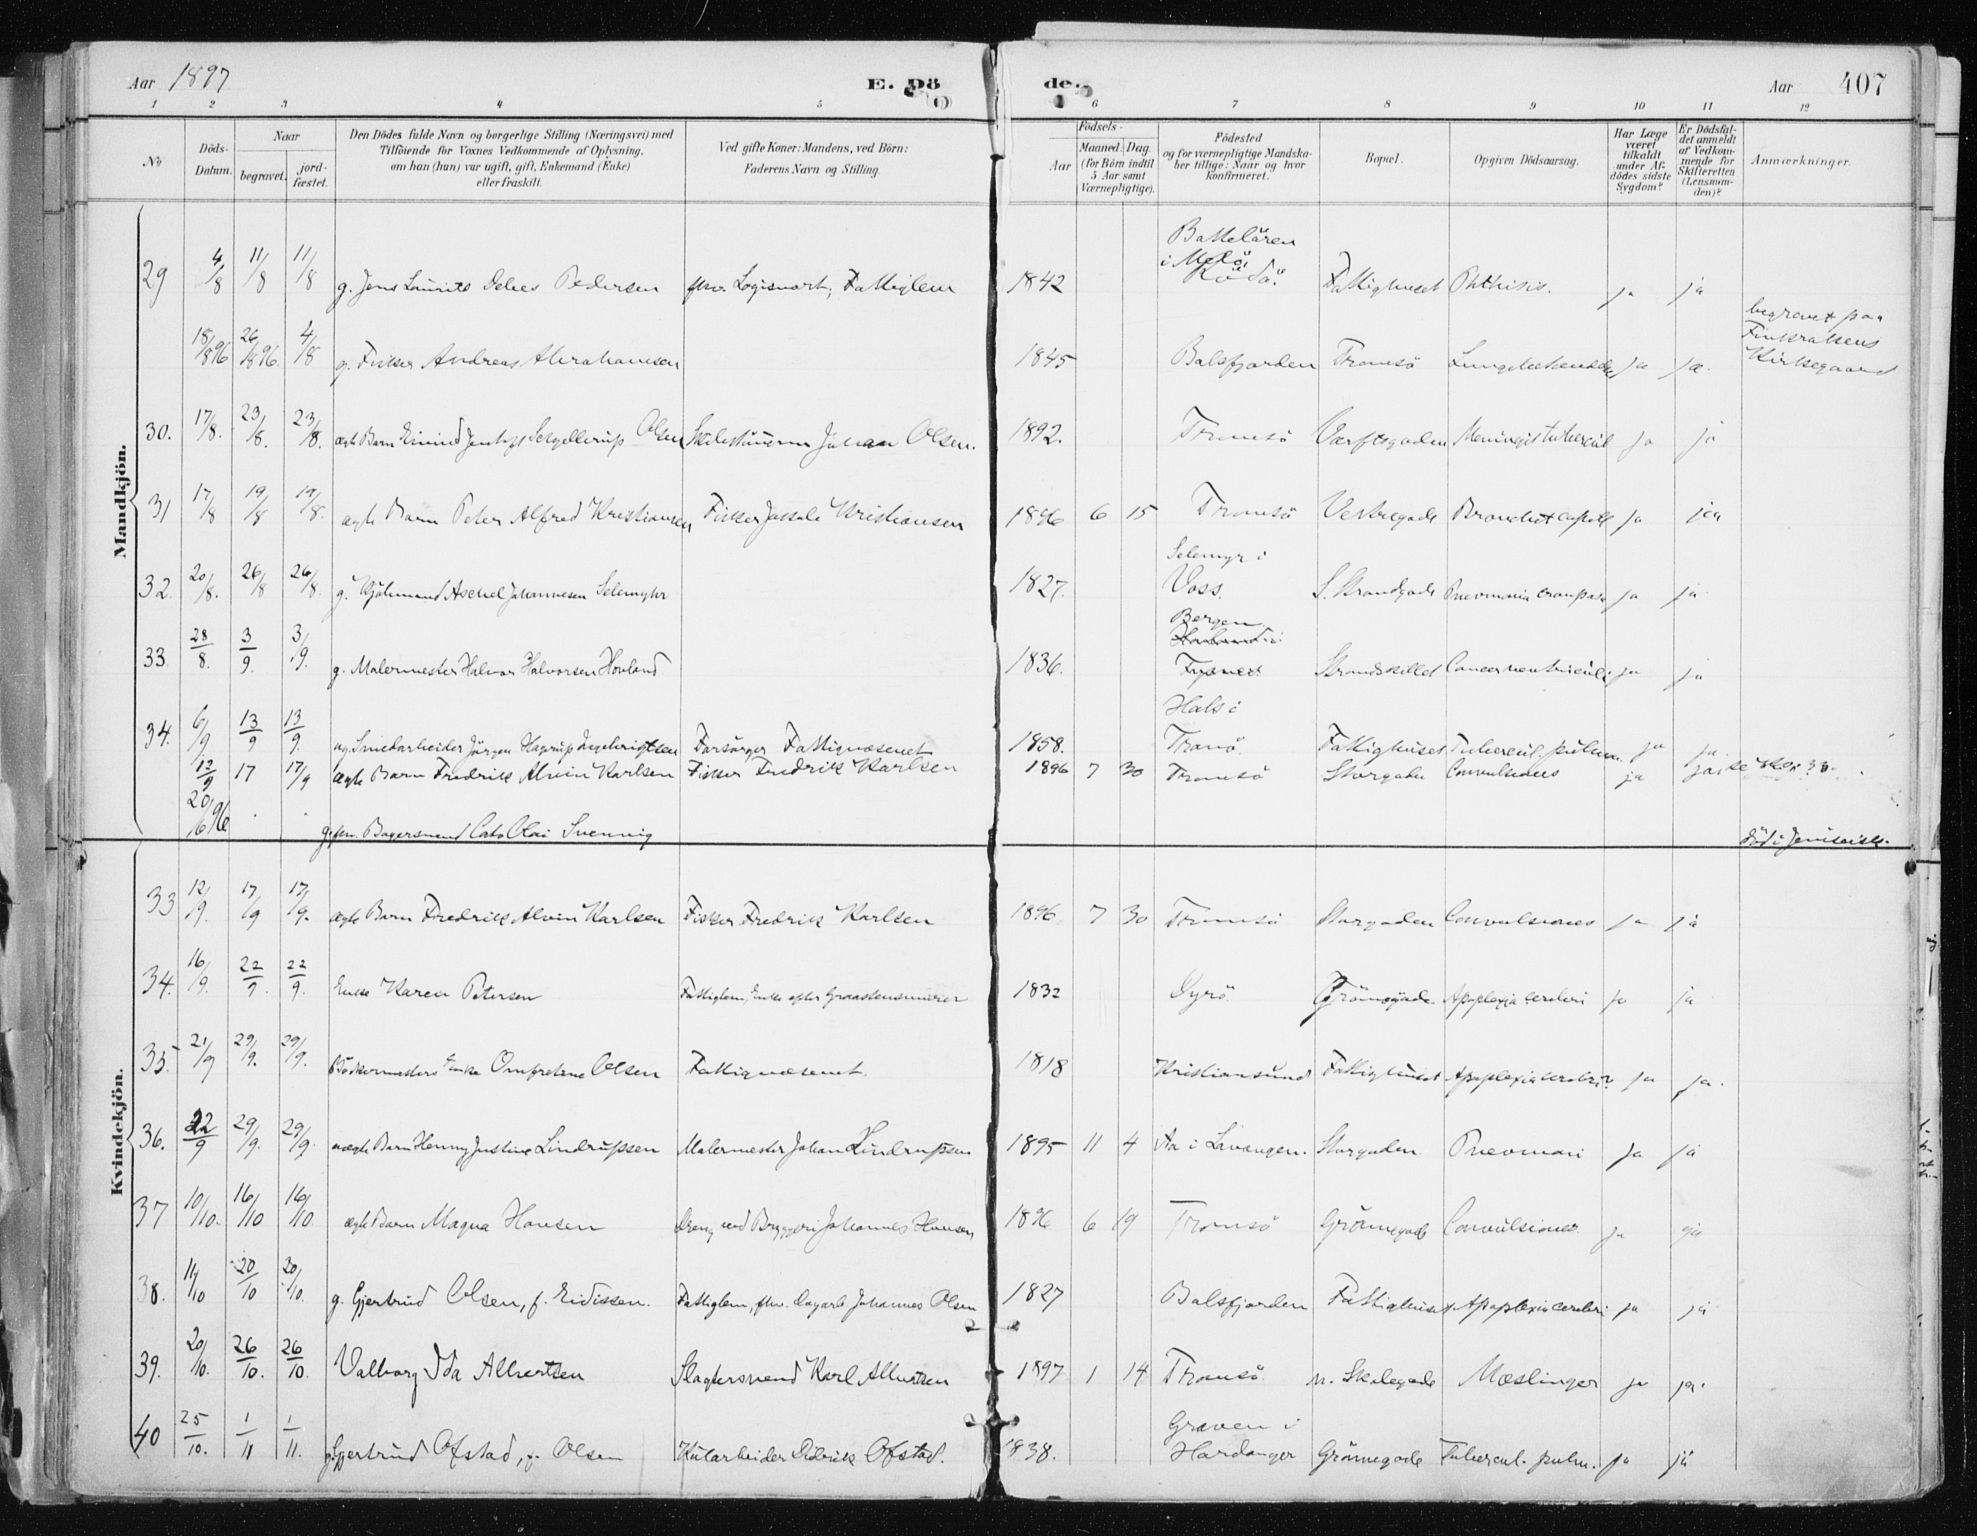 Aar 1897 E. Döde. Aar 407
1 2 3 4 5 6 7 8 9 10 11 12
No Döds-Datum. Naar begravet. jord-fæstet. Den Dödes fulde Navn og borgerlige Stilling (Næringsvei) med Tilföiende for Voxnes Vedkommende af Oplysning, om han (hun) var ugift, gift, Enkemand (Enke) eller fraskilt. Ved gifte Koner: Mandens, ved Börn: Faderens Navn og Stilling. Födsels- Aar Maaned. Dag. (for Börn indtil 5 Aar samt Værnepligtige). Födested og for værnepligtige Mandskaber tillige: Naar og hvor konfirmeret. Bopæl. Opgiven Dödsaarsag. Har Læge været tilkaldt under Afdödes sidste Sygdom? Er Dödsfaldet anmeldt af Vedkommende for Skifteretten (Lensmanden)? Anmærkninger.
Mandkjön.
29 4/8 11/8 11/8 g. Jens Laurits Pedersen fhv. Logisvært, Fattiglem 1842 i Melö, Rödö. Fattighuset Phthisis. ja ja
18/8 96 26/8 96. 4/8 g. Fisker Andreas Abrahamsen 1845 Balsfjorden Tromsö ja ja. begravet paa Kirkegaard
30. 17/8. 23/8. 23/8. ægte Barn Schjellerup Olsen Johan Olsen. 1892. Tromsö Værftsgaden ja ja
31 17/8 19/8 19/8. ægte Barn Peter Alfred Kristiansen Fisker Kristiansen 1896 6 15 Tromsö Vestregade ja ja
32. 20/8. 26/8 26/8. g. Johannesen Selemyhr 1827. Selemyr i Voss. S. Strandgade ja ja
33. 28/8. 3/9. 3/9. g. Malermester Halvor Halvorsen Hovland 1836. Bergen. Strandskillet Cancer ventriculi ja ja
34. 6/9 13/9 13/9. ug. Smedarbeider Jörgen Hagerup Ingebrigtsen Forsörger Fattigvæsenet 1858. Hals i Tranö. Fattighuset Tubercul. pulmon. ja ja.
12/9 17 17/9 ægte Barn Fredrik Alvin Karlsen Fisker Fredrik Karlsen 1896 7 30 Tromsö Storgaden Convulsiones ja ja
20/6 96 g. fhv. Olai Svenvig död i Jeniseisk.
Kvindekjön.
33 12/9. 17/9 17/9. ægte Barn Fredrik Alvin Karlsen Fisker Fredrik Karlsen 1896 7 30 Tromsö Storgaden Convulsiones ja ja
34. 16/9. 22/9. 22/9. Enke Karen Petersen Fattiglem, Enke efter Graastensmurer 1832 Dyrö. Grönnegade. Apoplexia cerebri ja ja
35. 21/9 29/9. 29/9. Bödkermesters Enke Olsen Fattigvæsenet. 1818 Kristiansund Fattighuset Apoplexia cerebri ja ja.
36. 22/9 29/9. 29/9. uægte Barn Henny Justine Lindrupsen Malermester Johan Lindrupsen 1895 11 4 Aa i Lavangen. Storgaden Pnevmoni ja ja
37 10/10. 16/10 16/10. ægte Barn Magna Hansen Dreng ved Bryggeri Johannes Hansen 1896 6 19 Tromsö Grönnegade Convulsiones ja ja
38. 11/10 20/10 20/10. g. Gjertrud Olsen, f. Eidissen. Fattiglem, fhv. Dagarb. Johannes Olsen 1827 Balsfjorden Fattighuset Apoplexia cerebri ja ja
39. 20/10. 26/10. 26/10. Valborg Ida Albertsen Slagtersvend Karl Albertsen 1897 1 14 Tromsö n. Skolegade Mæslinger ja ja.
40 25/10. 1/11 1/11. g. Gjertrud Ofstad, f. Olsen Kularbeider Didrik Ofstad. 1838. Graven i Hardanger Grönnegade Tubercul. pulm. ja ja